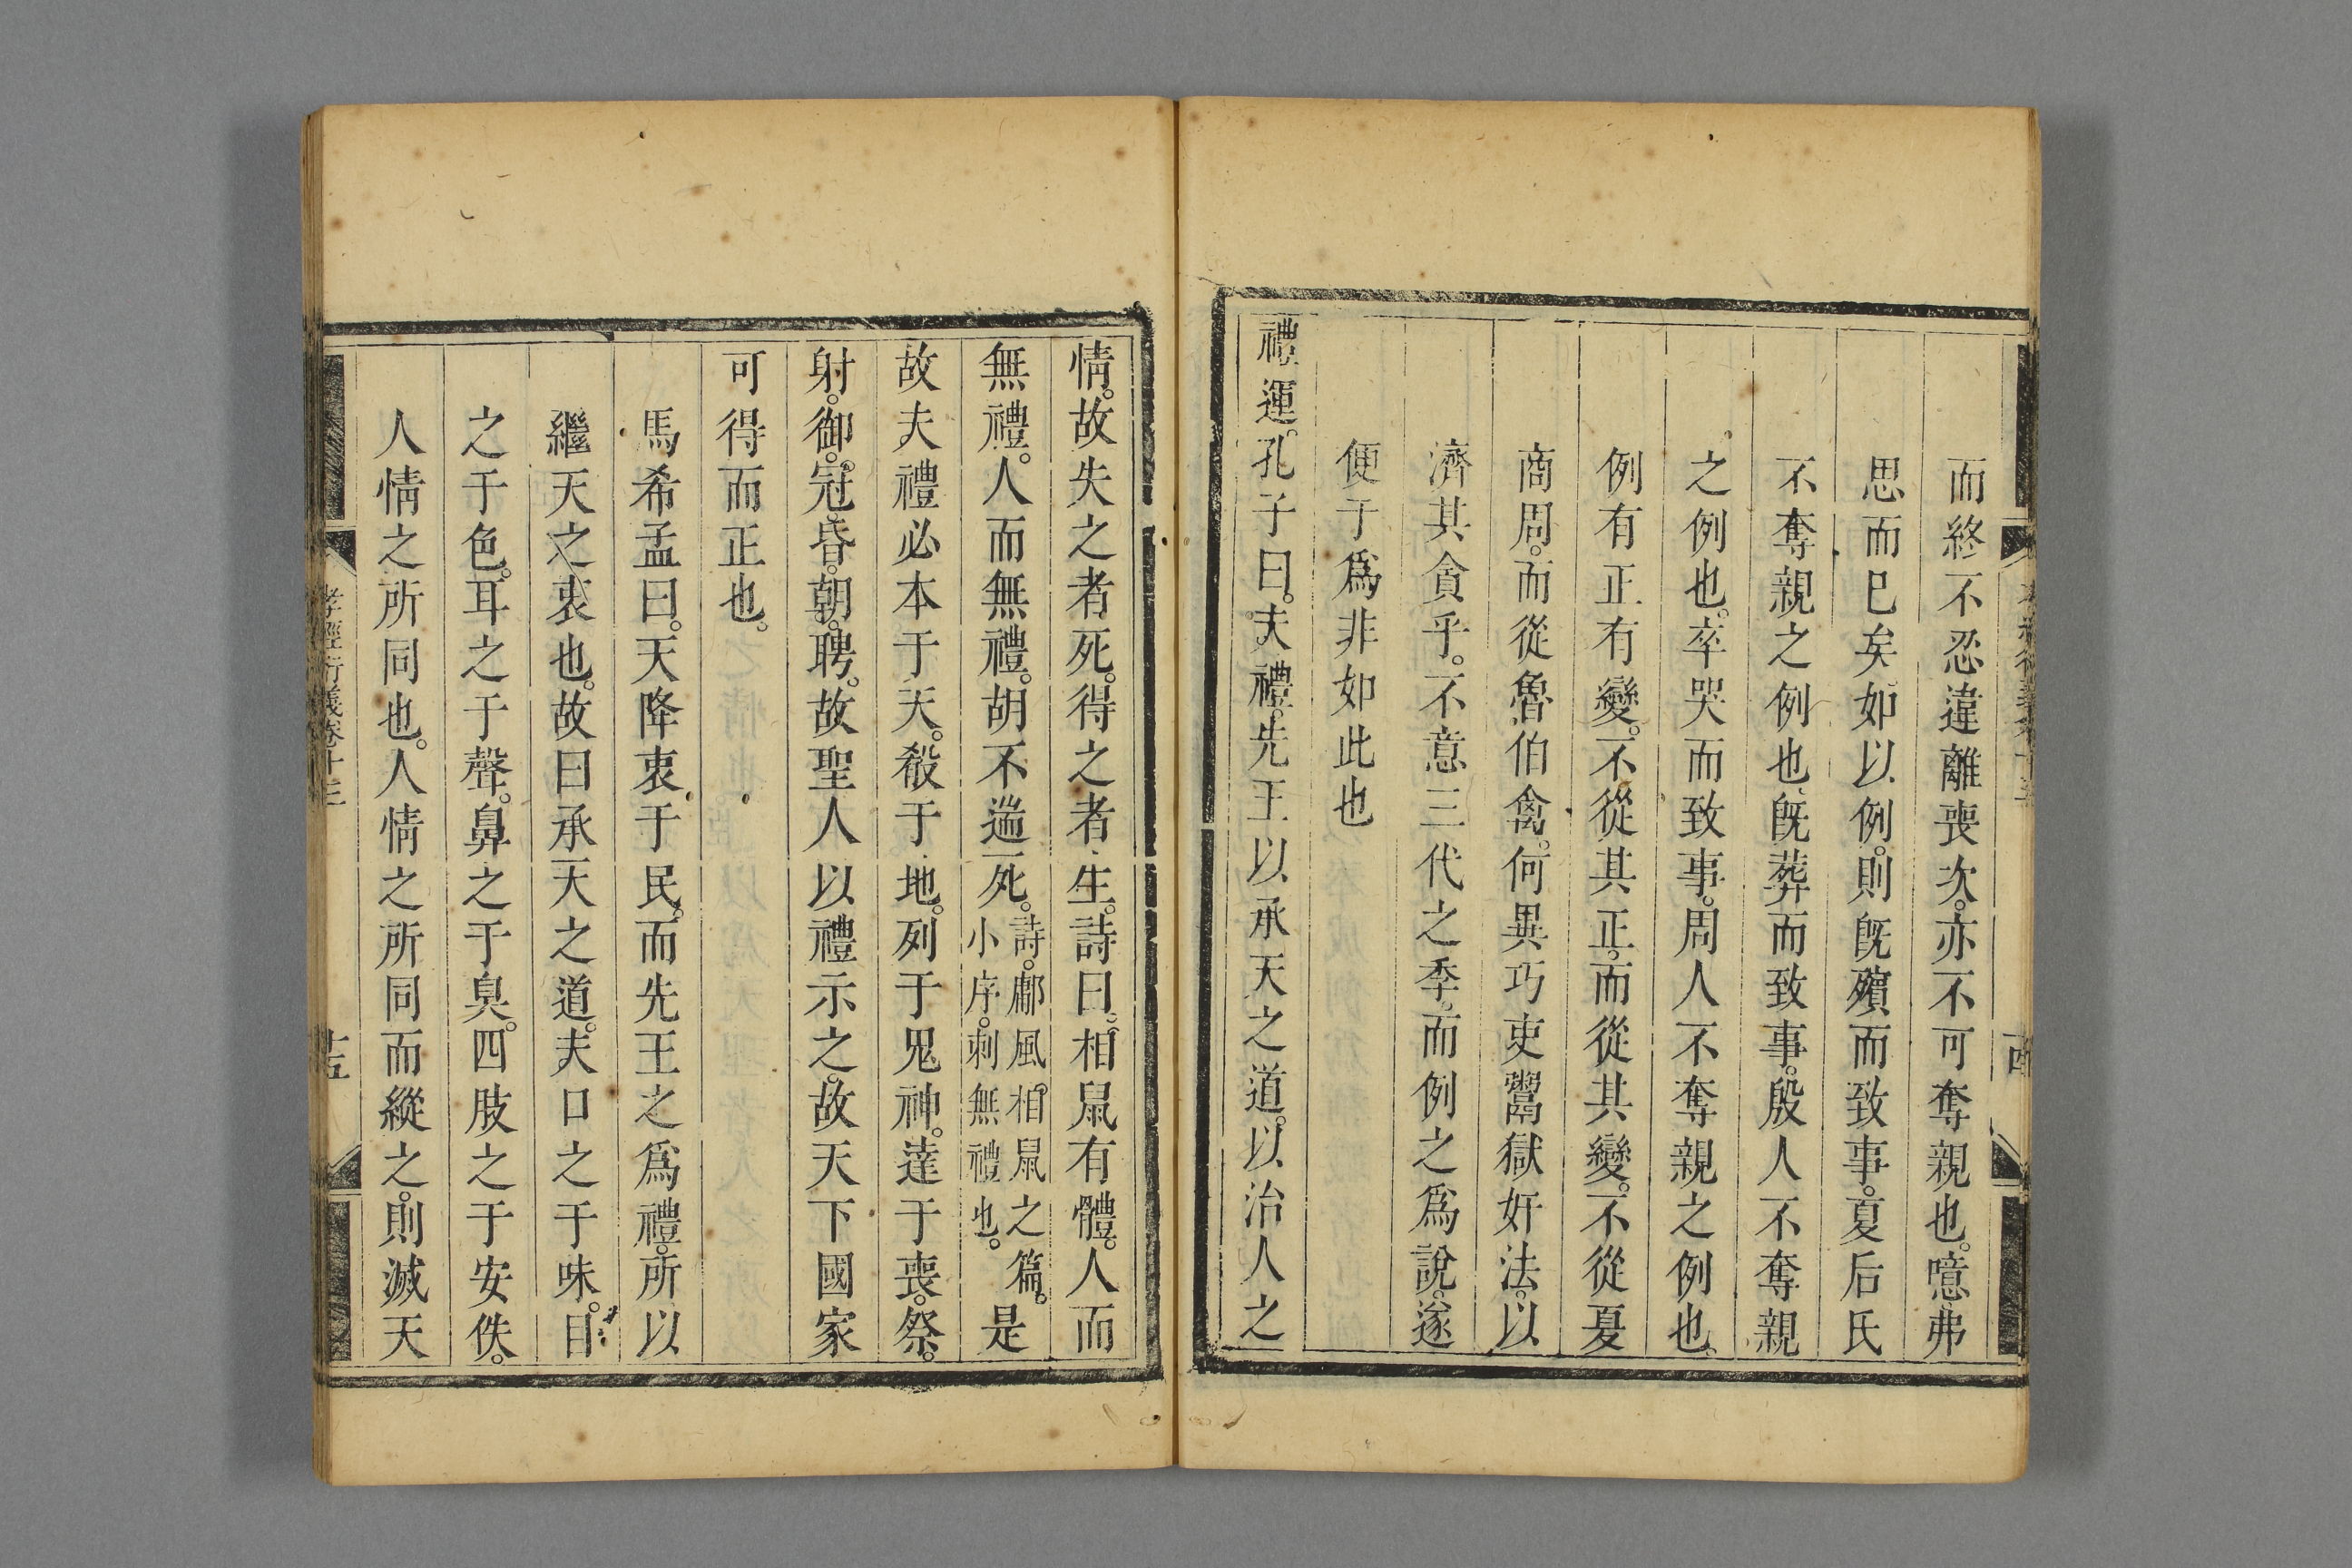 而終不忍違離喪次。亦不可奪親也。噫。弗
思而已矣。如以例。則旣殯而致事。夏后氏
不奪親之例也。旣葬而致事。殷人不奪親
之例也。卒哭而致事。周人不奪親之例也。
例有正有變。不從其正。而從其變。不從夏
商周。而從魯伯禽。何異巧吏鬻獄奸法。以
濟其貪乎。不意三代之季。而例之爲說。遂
便于爲非如此也
禮運。孔子曰。夫禮。先王以承天之道。以治人之
情。故失之者死。得之者生。詩曰。相鼠有體。人而
無禮。人而無禮。胡不遄死。詩。鄘風。相鼠之篇。小序。刺無禮也。是
故夫禮必本于天。殽于地。列于鬼神。達于喪。祭。
射。御。冠。昏。朝。聘。故聖人以禮示之。故天下國家
可得而正也。
馬希孟曰。天降衷于民。而先王之爲禮。所以
繼天之衷也。故曰承天之道。夫口之于味。目
之于色。耳之于聲。鼻之于臭。四肢之于安佚。
人情之所同也。人情之所同而縱之。則滅天
孝經衍義卷十三
十五